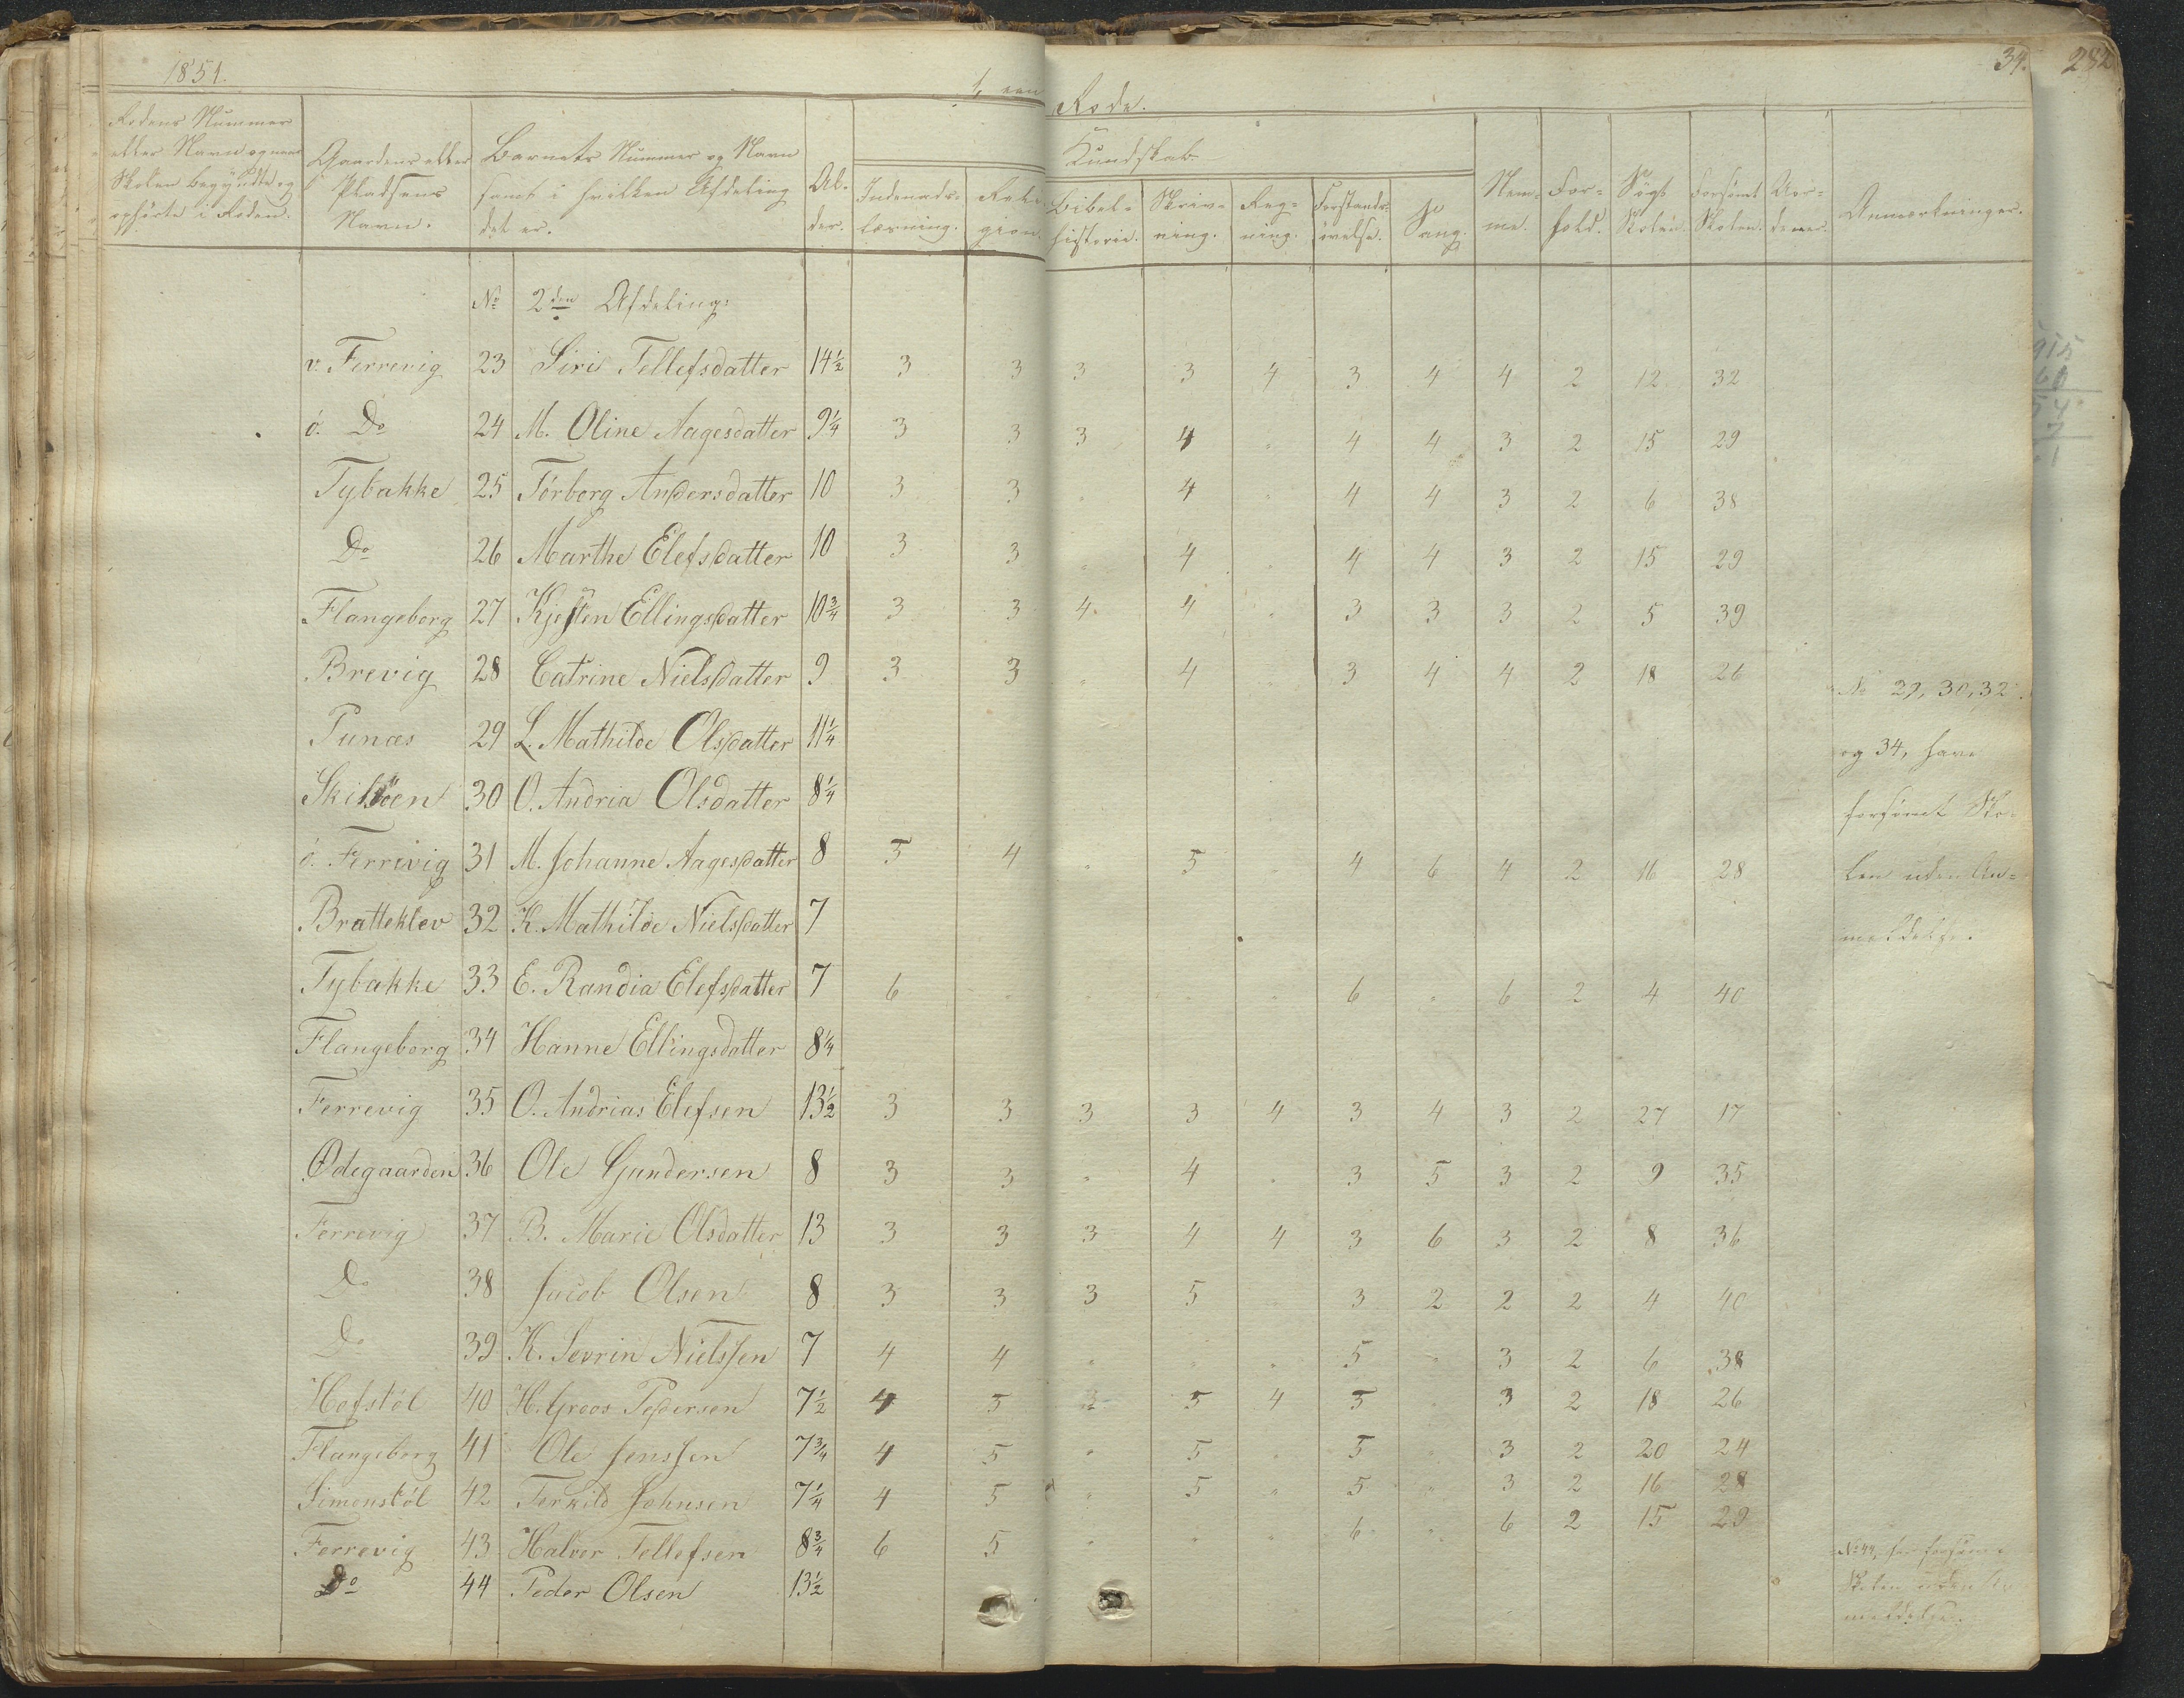 1851.
34.
282
Rode.
Rodens Nummer
eller Navn og naar
Skolen begyndte og
ophørte i Roden.
Gaardens eller
Pladsens
Navn.
Barnets Nummer og Navn
samt i hvilken Afdeling
det er.
Al-
der.
Kundskab.
Indenads-
læsning.
Reli-
gion.
Bibel-
historie.
Skriv-
ning.
Reg-
ning.
Forstands-
øvelse.
Sang.
Nem-
me.
For-
hold.
Søgt
Skolen.
Forsømt
Skolen.
Anmærkninger.
No 2den Afdeling:
v. Ferrevig 23 Siri Tellefsdatter 14½ 3 3 3 3 4 3 4 4 2 12 32
ö. Do 24 M. Oline Aagesdatter 9¼ 3 3 3 4 " 4 4 3 2 15 29
Tybakke 25 Törborg Andersdatter 10 3 3 " 4 " 4 4 3 2 6 38
Do 26 Marthe Elefsdatter 10 3 3 " 4 " 4 4 3 2 15 29
Flangeborg 27 Kjesten Ellingsdatter 10¾ 3 3 4 4 " 3 3 3 2 5 39
Brevig 28 Catrine Nielsdatter 9 3 3 " 4 " 3 4 4 2 18 26
No 29, 30, 32
Punæs 29 L. Mathilde Olsdatter 11¼
og 34, have
Skilsöen 30 O. Andria Olsdatter 8¼
forsömt Sko-
ö. Ferrevig 31 M. Johanne Aagesdatter 8 5 4 " 5 " 4 6 4 2 16 28
len uden An-
Bratteklev 32 K. Mathilde Nielsdatter 7
meldelse.
Tybakke 33 E. Randia Elefsdatter 7 6 " " " " 6 " 6 2 4 40
Flangeborg 34 Hanne Ellingsdatter 8¼
Ferrevig 35 O. Andrias Elefsen 13½ 3 3 3 3 4 3 4 3 2 27 17
Ødegaarden 36 Ole Gundersen 8 3 3 " 4 " 3 5 3 2 9 35
Ferrevig 37 B. Marie Olsdatter 13 3 3 3 4 4 3 6 3 2 8 36
Do 38 Jacob Olsen 8 3 3 3 5 " 3 2 2 2 4 40
Do 39 K. Sevrin Nielssen 7 4 4 " " " 5 " 3 2 6 38
Hofstöl 40 H. Groos Pedersen 7½ 4 5 5 4 5 " 3 2 18 26
Flangeborg 41 Ole Jenssen 7¾ 4 5 " 5 " 5 " 3 2 20 24
Simonstöl 42 Terkild Johnsen 7¼ 4 5 " 5 " 5 " 3 2 16 28
Ferrevig 43 Halvor Tellefsen 8¾ 6 5 " " " 6 " 6 2 15 29
No 44, har forsömt
Do 44 Peder Olsen 13½
Skolen uden An-
meldelse.